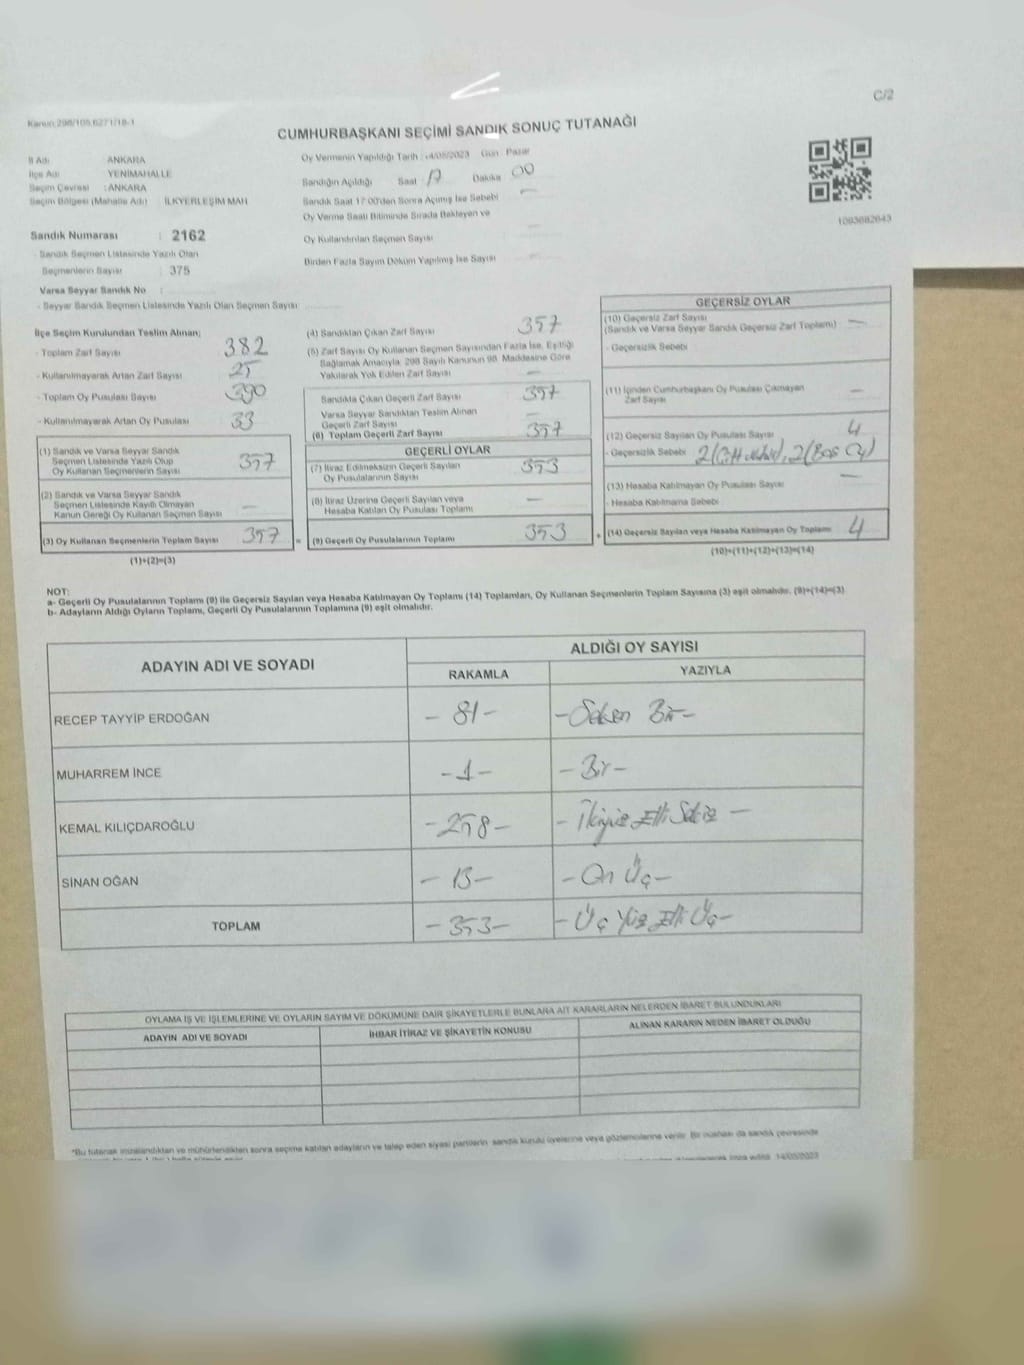 C/2
Kanun:298/105,6271/18-1
CUMHURBAŞKANI SEÇİMİ SANDIK SONUÇ TUTANAĞI
İl Adı : ANKARA
İlçe Adı : YENİMAHALLE
Seçim Çevresi : ANKARA
Seçim Bölgesi (Mahalle Adı) : İLKYERLEŞİM MAH
Sandık Numarası : 2162
- Sandık Seçmen Listesinde Yazılı Olan
Seçmenlerin Sayısı : 375
Varsa Seyyar Sandık No :
- Seyyar Sandık Seçmen Listesinde Yazılı Olan Seçmen Sayısı
Oy Vermenin Yapıldığı Tarih : 14/05/2023 Gün : Pazar
Sandığın Açıldığı Saat 17 Dakika 00
Sandık Saat 17:00'den Sonra Açılmış İse Sebebi —
Oy Verme Saati Bitiminde Sırada Bekleyen ve
Oy Kullandırılan Seçmen Sayısı —
Birden Fazla Sayım Döküm Yapılmış İse Sayısı —
1093682643
İlçe Seçim Kurulundan Teslim Alınan;
- Toplam Zarf Sayısı 382
- Kullanılmayarak Artan Zarf Sayısı 25
- Toplam Oy Pusulası Sayısı 390
- Kullanılmayarak Artan Oy Pusulası 33
(1) Sandık ve Varsa Seyyar Sandık
Seçmen Listesinde Yazılı Olup
Oy Kullanan Seçmenlerin Sayısı 357
(2) Sandık ve Varsa Seyyar Sandık
Seçmen Listesinde Kayıtlı Olmayan
Kanun Gereği Oy Kullanan Seçmen Sayısı —
(3) Oy Kullanan Seçmenlerin Toplam Sayısı 357 =
(1)+(2)=(3)
(4) Sandıktan Çıkan Zarf Sayısı 357
(5) Zarf Sayısı Oy Kullanan Seçmen Sayısından Fazla İse, Eşitliği
Sağlamak Amacıyla, 298 Sayılı Kanunun 98. Maddesine Göre
Yakılarak Yok Edilen Zarf Sayısı —
Sandıkta Çıkan Geçerli Zarf Sayısı 357
Varsa Seyyar Sandıktan Teslim Alınan
Geçerli Zarf Sayısı —
(6) Toplam Geçerli Zarf Sayısı 357
GEÇERLİ OYLAR
(7) İtiraz Edilmeksizin Geçerli Sayılan
Oy Pusulasının Sayısı 353
(8) İtiraz Üzerine Geçerli Sayılan veya
Hesaba Katılan Oy Pusulası Toplamı —
(9) Geçerli Oy Pusulalarının Toplamı 353 +
GEÇERSİZ OYLAR
(10) Geçersiz Zarf Sayısı
(Sandık ve Varsa Seyyar Sandık Geçersiz Zarf Toplamı) —
- Geçersizlik Sebebi
(11) İçinden Cumhurbaşkanı Oy Pusulası Çıkmayan
Zarf Sayısı —
(12) Geçersiz Sayılan Oy Pusulası Sayısı 4
- Geçersizlik Sebebi 2(Çift Mühür), 2(Boş Oy)
(13) Hesaba Katılmayan Oy Pusulası Sayısı —
- Hesaba Katılmama Sebebi
(14) Geçersiz Sayılan veya Hesaba Katılmayan Oy Toplamı 4
(10)+(11)+(12)+(13)=(14)
NOT:
a- Geçerli Oy Pusulalarının Toplamı (9) ile Geçersiz Sayılan veya Hesaba Katılmayan Oy Toplamı (14) Toplamları, Oy Kullanan Seçmenlerin Toplam Sayısına (3) eşit olmalıdır. (9)+(14)=(3)
b- Adayların Aldığı Oyların Toplamı, Geçerli Oy Pusulalarının Toplamına (9) eşit olmalıdır.
ADAYIN ADI VE SOYADI
ALDIĞI OY SAYISI
RAKAMLA YAZIYLA
RECEP TAYYİP ERDOĞAN -81- -Seksen Bir-
MUHARREM İNCE -1- -Bir-
KEMAL KILIÇDAROĞLU -258- -İkiyüz Elli Sekiz-
SİNAN OĞAN -13- -On Üç-
TOPLAM -353- -Üç Yüz Elli Üç-
OYLAMA İŞ VE İŞLEMLERİNE VE OYLARIN SAYIM VE DÖKÜMÜNE DAİR ŞİKAYETLERLE BUNLARA AİT KARARLARIN NELERDEN İBARET BULUNDUKLARI
ADAYIN ADI VE SOYADI İHBAR İTİRAZ VE ŞİKAYETİN KONUSU ALINAN KARARIN NEDEN İBARET OLDUĞU
*Bu tutanak imzalandıktan ve mühürlendikten sonra seçime katılan adayların ve talep eden siyasi partilerin sandık kurulu üyelerine veya gözlemcilerine verilir. Bir nüshası da sandık çevresinde
imza edildi. 14/05/2023